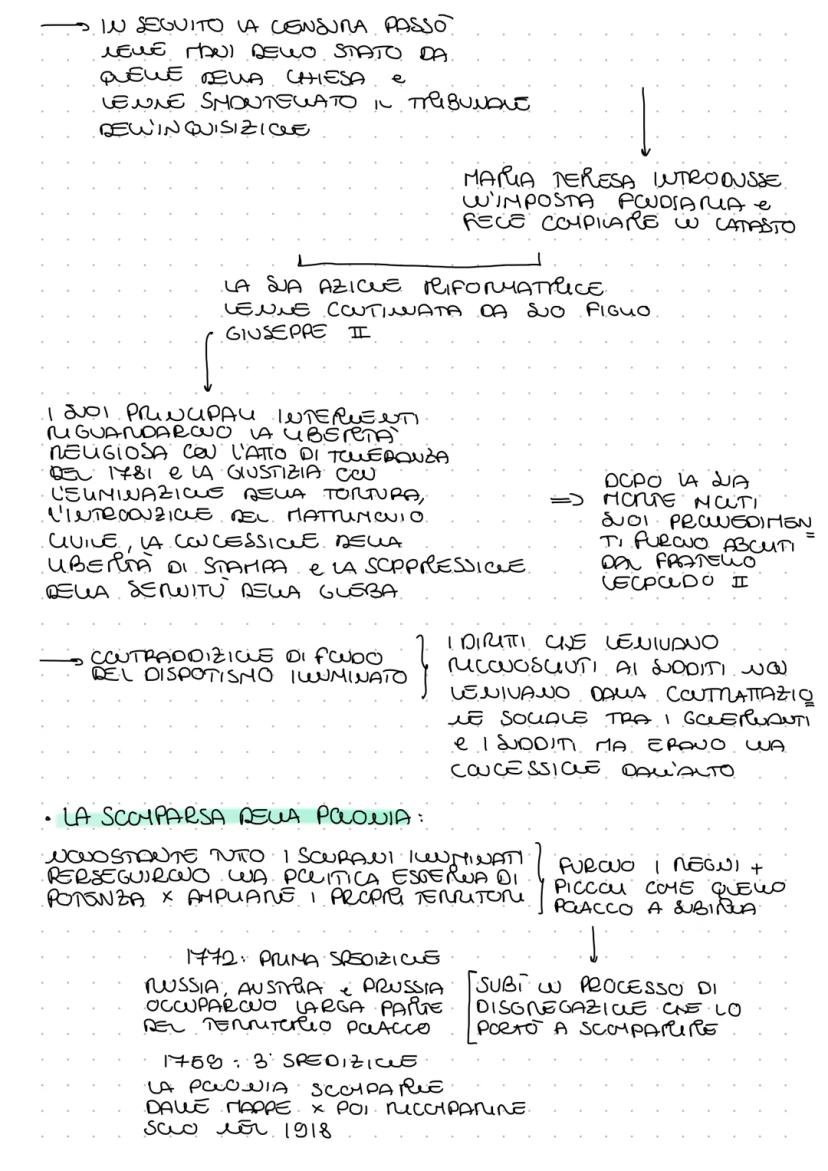 → IN SEGUITO LA CENSURA PASSÒ
NELLE MANI DELLO STATO DA
QUELLE DELLA CHIESA e
VENNE SMONTELLATO IL TRIBUNALE
DELL'INQUISIZIONE
MARIA TERESA INTRODUSSE
UN'IMPOSTA FONDIARIA e
FECE COMPILARE UN CATASTO
LA SUA AZIONE RIFORMATRICE
VENNE CONTINUATA DA SUO FIGLIO
GIUSEPPE II
I SUOI PRINCIPALI INTERVENTI
RIGUARDARONO LA LIBERTÀ
RELIGIOSA CON L'ATTO DI TOLLERANZA
DEL 1781 e LA GIUSTIZIA CON
L'ELIMINAZIONE DELLA TORTURA,
L'INTRODUZIONE DEL MATRIMONIO
CIVILE, LA CONCESSIONE DELLA
LIBERTÀ DI STAMPA e LA SOPPRESSIONE
DELLA SERVITÙ DELLA GLEBA
=> DOPO LA SUA
MORTE MOLTI
SUOI PROVVEDIMEN=
TI FURONO ABOLITI
DAL FRATELLO
LEOPOLDO II
→ CONTRADDIZIONE DI FONDO
DEL DISPOTISMO ILLUMINATO
I DIRITTI CHE VENIVANO
RICONOSCIUTI AI SUDDITI NON
VENIVANO DALLA CONTRATTAZIO=
NE SOCIALE TRA I GOVERNANTI
e I SUDDITI MA ERANO UNA
CONCESSIONE DALL'ALTO
• LA SCOMPARSA DELLA POLONIA:
NONOSTANTE TUTTO I SOVRANI ILLUMINATI
PERSEGUIRONO UNA POLITICA ESTERNA DI
POTENZA x AMPLIARE I PROPRI TERRITORI
FURONO I REGNI +
PICCOLI COME QUELLO
POLACCO A SUBIRLA
1772: PRIMA SPEDIZIONE
RUSSIA, AUSTRIA e PRUSSIA
OCCUPARONO LARGA PARTE
DEL TERRITORIO POLACCO
SUBÌ UN PROCESSO DI
DISGREGAZIONE CHE LO
PORTÒ A SCOMPARIRE
1759: 3ª SPEDIZIONE
LA POLONIA SCOMPARVE
DALLE MAPPE x POI RICOMPARIRE
SOLO NEL 1918